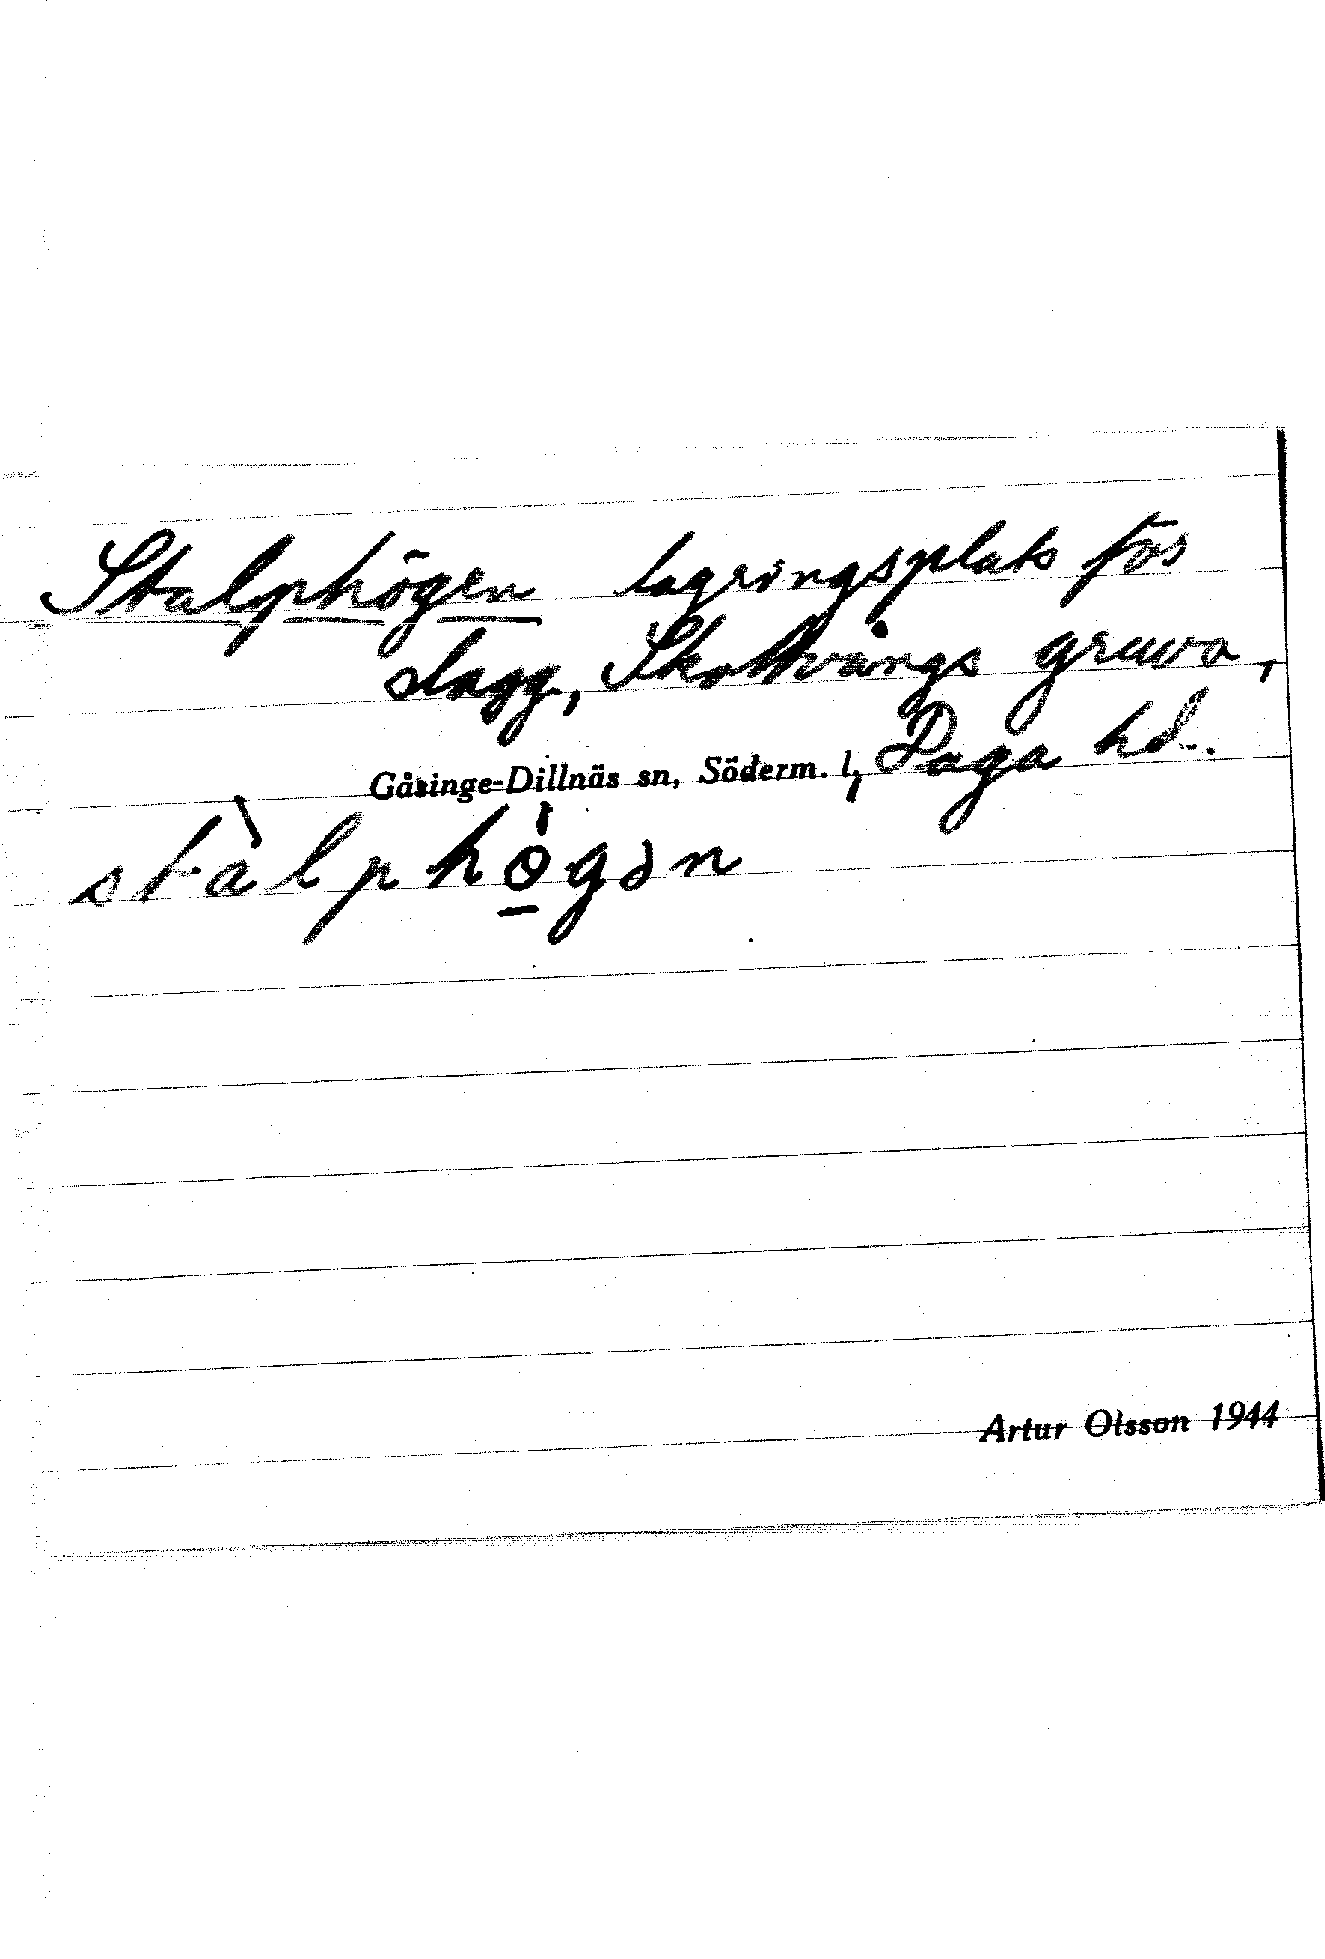 Stalphögen lagringsplats för
slagg, Skottvångs gruva,
Gåsinge-Dillnäs sn, Söderm. l, Daga hd.
stàlphö̱gən
Artur Olsson 1944